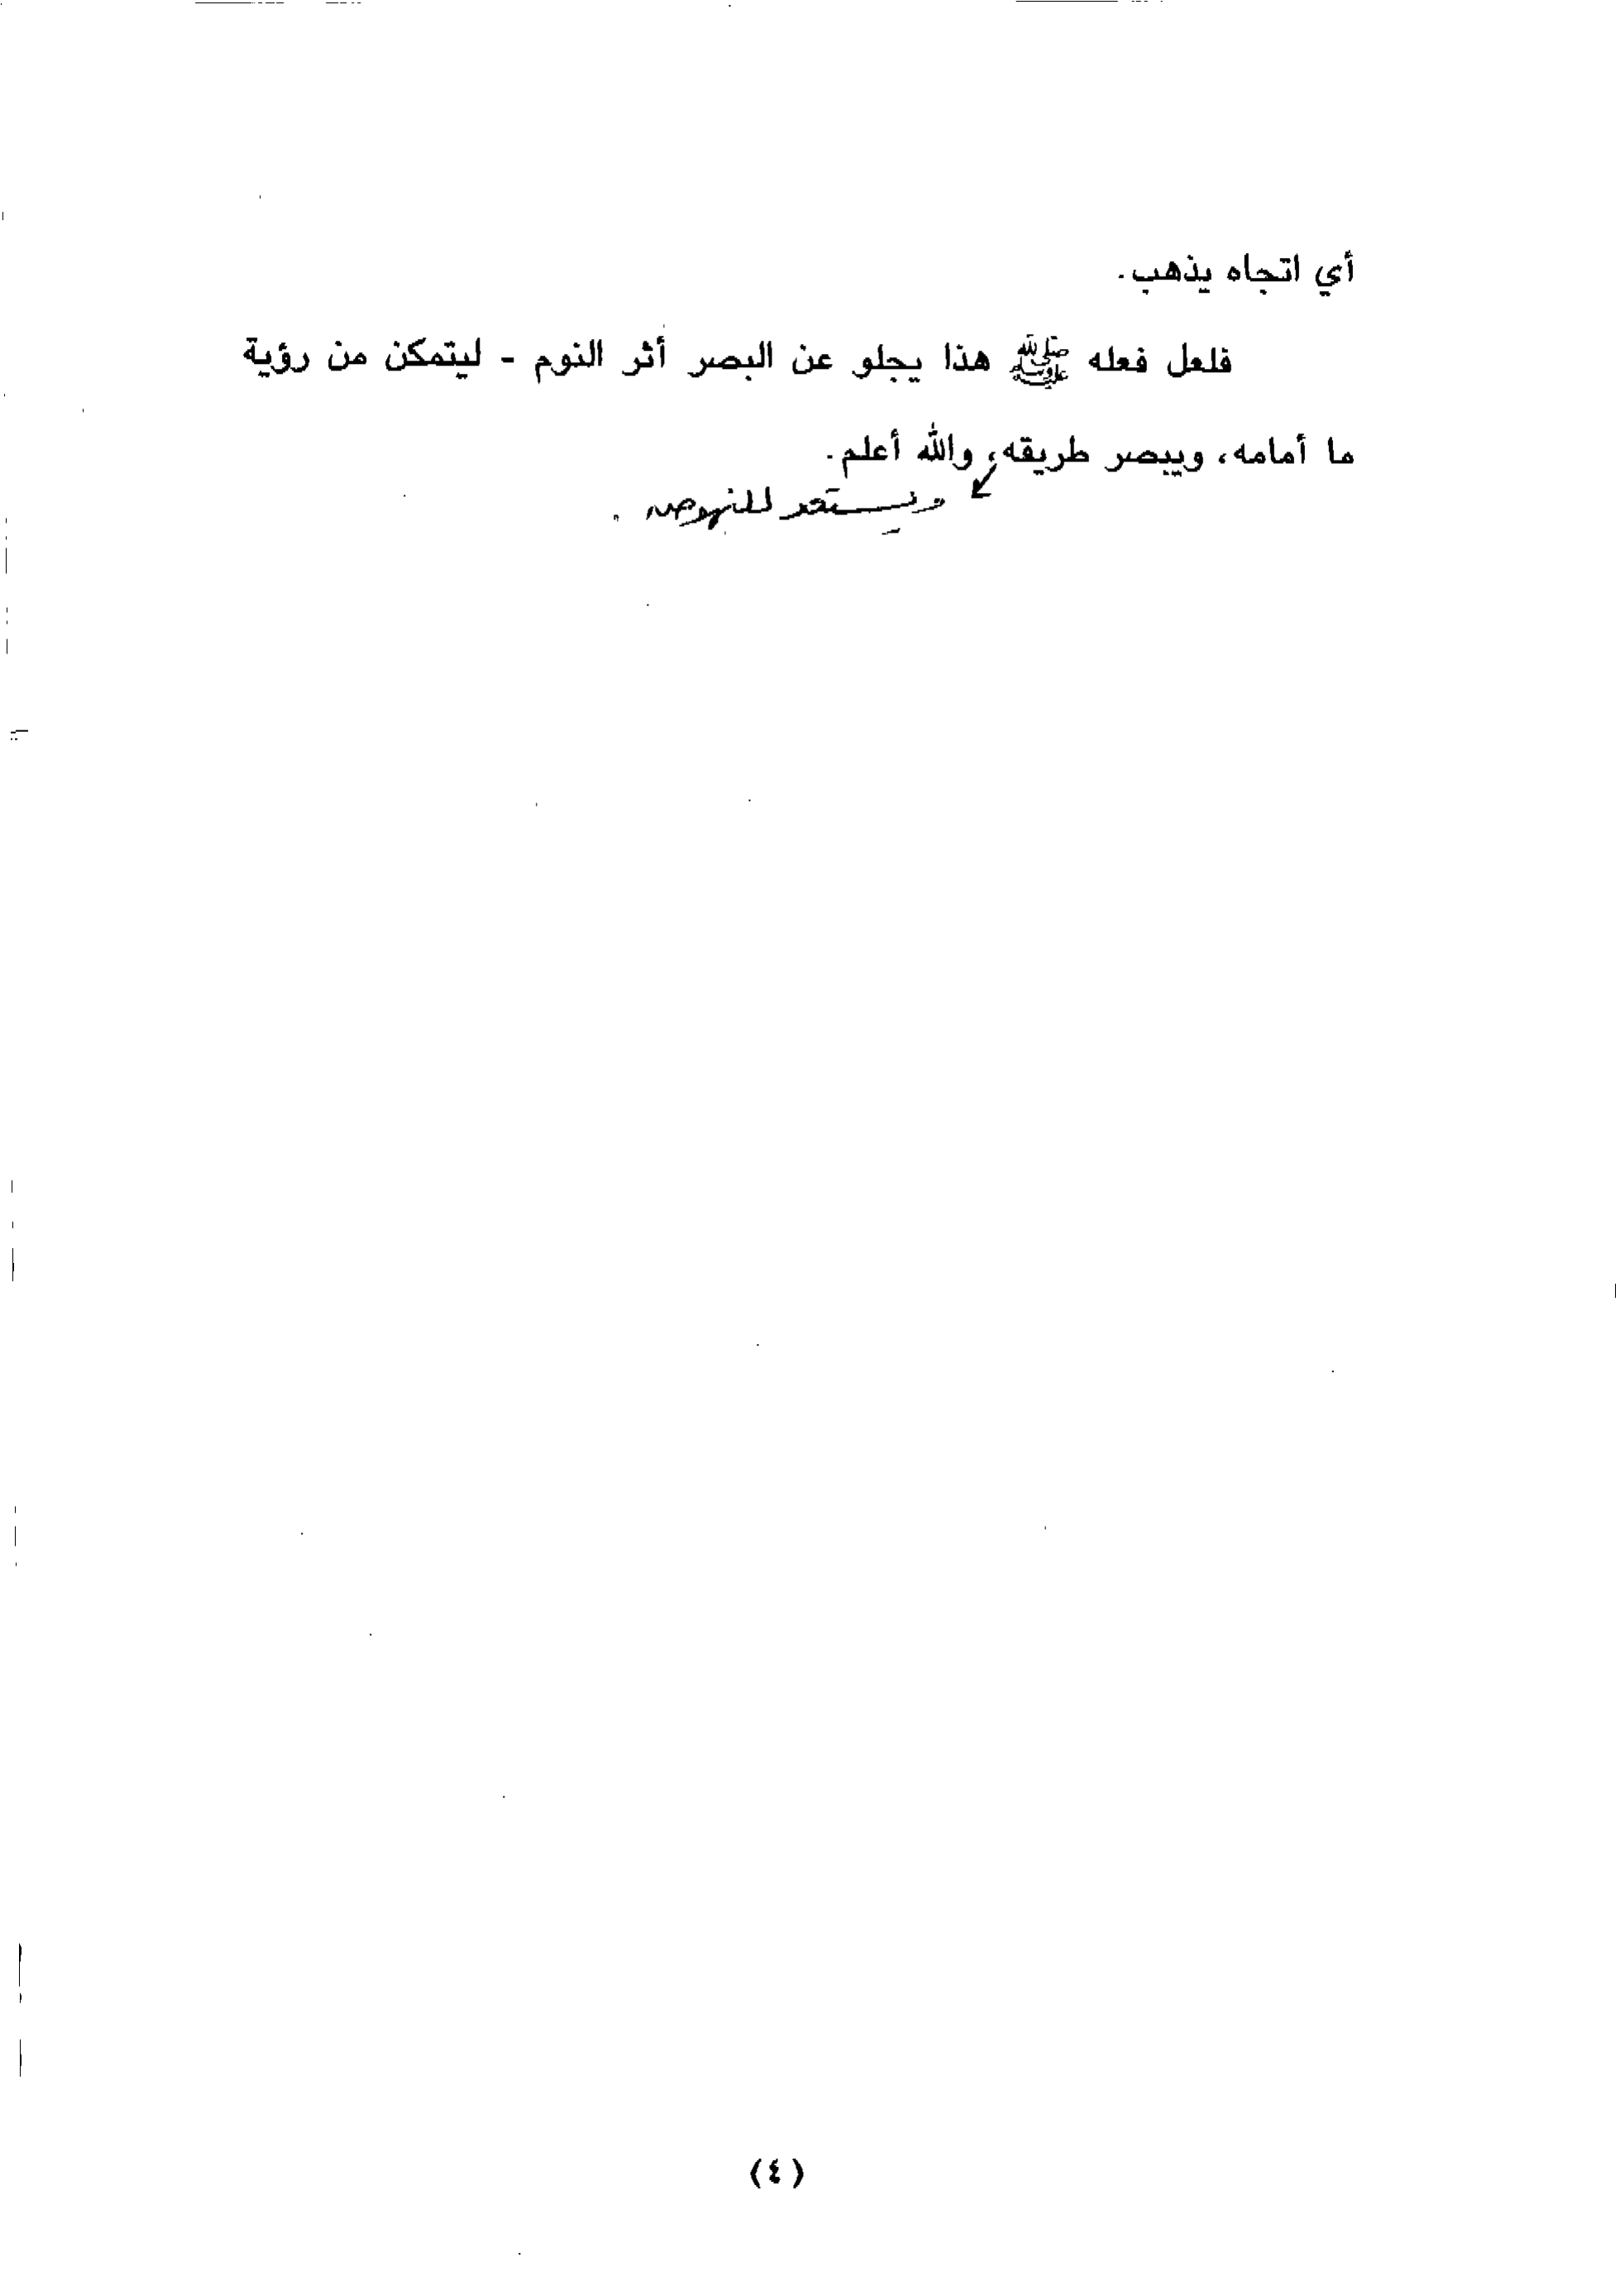 أي اتجاه يذهب.
فلعل فعله ﷺ هذا يجلو عن البصر أثر النوم - ليتمكن من رؤية
ما أمامه، ويبصر طريقه، والله أعلم.
ويستعد للنهوض .
(٤)